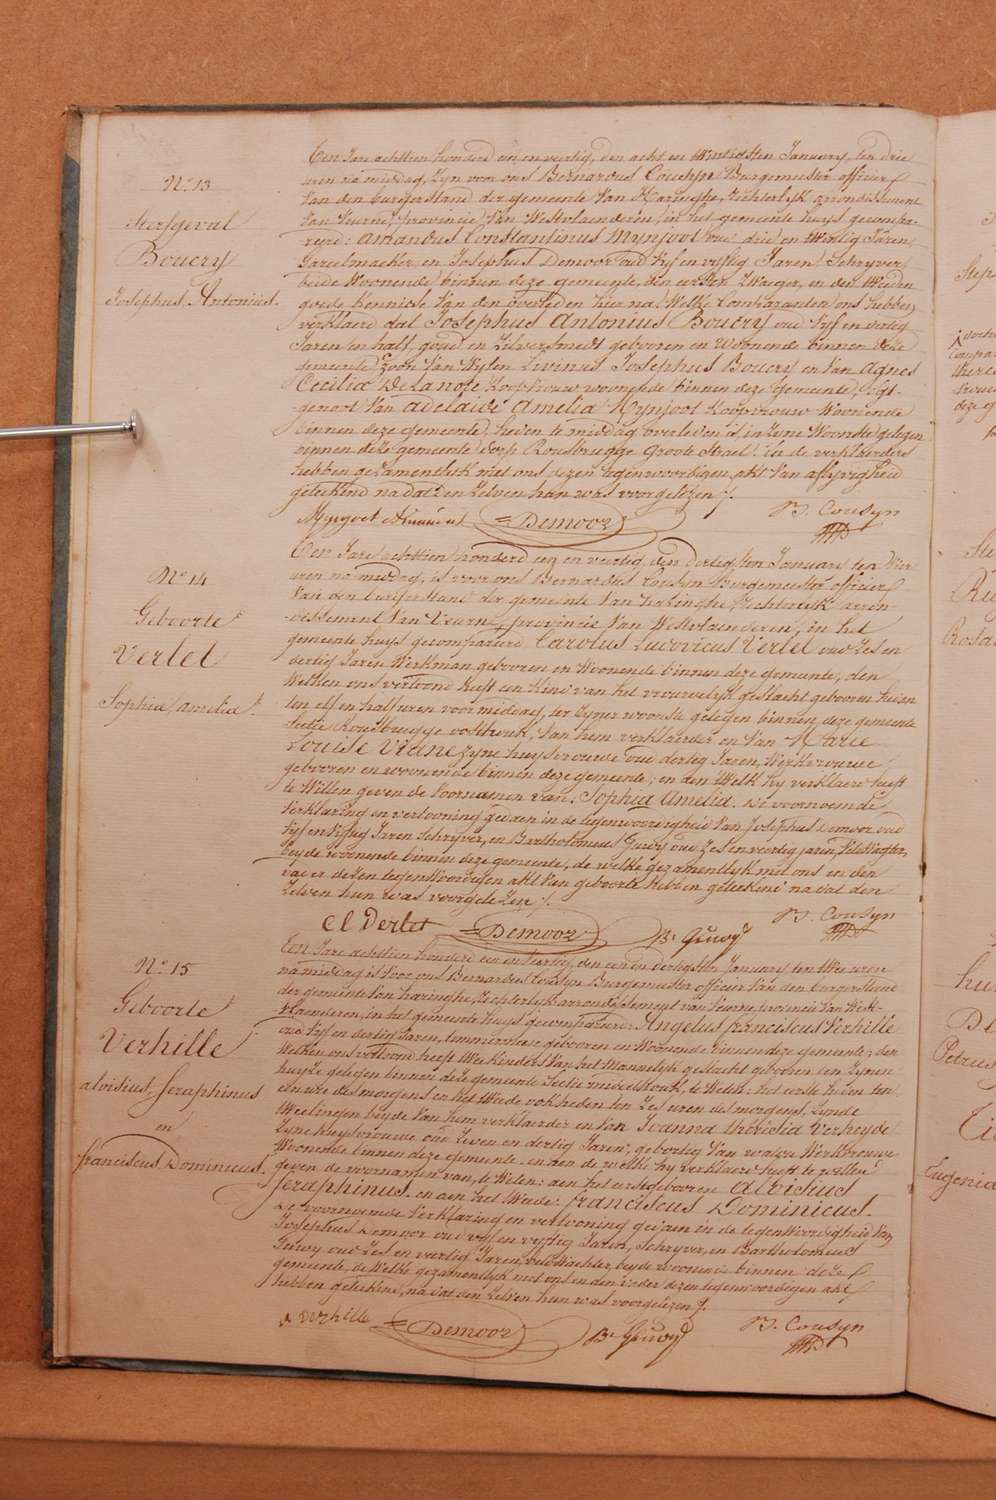 N° 13
Sterfgeval
Boucry
Josephus Antonius.
Een Jare achttien honderd een en veertig, den acht en twintigsten January, ten drie
uren na middag, zyn voor ons Bernardus Cousyn Burgemeester officier
van den burgerstand der gemeente van Haringhe, Rechterlyk arrondissement
van Veurne, provincie van Westvlaenderen, in het gemeente huys gecompa-
reerd: Amandus Constantinus Mynjoot oud drie en twintig Jaren
Gareelmaeker, en Josephus Demoor oud vyf en vyftig Jaren Schryver
beide woonende binnen deze gemeente, den eersten zwager, en den tweeden
goede kennisse van den overleden hier na, welke Comparanten ons hebben
verklaerd dat Josephus Antonius Boucry oud vyf en dertig
Jaren en half, goud en zilversmedt gebooren en woonende binnen deze
gemeente Zoon van wylen Livinus Josephus Boucry en van Agnes
Cecilia De Lanote koopvrouw woonende binnen deze gemeente, Egt-
genoot van Adelaide Amelia Mynjoot koopvrouw woonende
binnen deze gemeente, heden te middag overleden is, in zyne woonste gelegen
binnen deze gemeente dorp Rousbrugge groote straet: en de verklaerders
hebben gezamentlyk met ons dezen tegenwoordigen akt van aflyvigheid
geteekend na dat den zelven hun was voorgelezen /.
Mynjoot Amand Demoor B. Cousyn
N° 14
Geboorte
Verlet
Sophia Amelia.
Een Jare achttien honderd een en veertig, den dertigsten January ten vier
uren na middag, is voor ons Bernardus Cousyn Burgemeester officier
van den burgerstand der gemeente van Haringhe, Rechterlyk arron-
-dissement van Veurne, provincie van Westvlaenderen, in het
gemeente huys gecompareerd Carolus Ludovicus Verlet oud zes en
dertig Jaren werkman gebooren en woonende binnen deze gemeente, den
welken ons vertoond heeft een kind van het vrouwelyk geslacht gebooren huien
ten elf en half uren voormiddag, ter zyner woonste gelegen binnen deze gemeente
Sectie Rousbrugge oosthoek, van hem verklaerder en van Marie
Louise Viane zyne huysvrouwe oud dertig Jaren, Werkvrouwe
gebooren en woonende binnen deze gemeente; en den welk hy verklaerd heeft
te willen geven de voornamen van: Sophia Amelia. de voornoemde
verklaring en vertooning gedaen in de tegenwoordigheid van Josephus Demoor oud
vyf en vyftig Jaren Schryver, en Bartholomeus Guwy oud zes en veertig jaren, veldwagter,
beyde woonende binnen deze gemeente, de welke gezamentlyk met ons en den
vader dezen tegenwoordigen akt van geboorte hebben geteekend na dat den
zelven hun was voorgelezen /.
C L Verlet Demoor Be Guwy B. Cousyn
N° 15
Geboorte
Verhille
aloisius Seraphinus
en
franciscus Dominicus.
Een Jare achttien honderd een en veertig, den een en dertigsten January, ten twee uren
na middag is voor ons Bernardus Cousyn Burgemeester officier van den burgerstand
der gemeente van Haringhe, Rechterlyk arrondissement van Veurne, provincie van West-
vlaenderen, in het gemeente huys gecompareerd: Angelus franciscus Verhille
oud vyf en dertig Jaren, timmerman gebooren en woonende binnen deze gemeente; den
welken ons vertoond heeft twee kinders van het mannelyk geslacht gebooren ten zynen
huyze gelegen binnen deze gemeente Sectie middelhoek, te weten: het eerste heden ten
een ure des morgens en het twede ook heden ten zes uren des morgens, zynde
tweelingen beyde van hem verklaerder en van Joanna theresia Verheyde
zyne huysvrouwe oud zeven en dertig Jaren, gebortig van watou Werkvrouwe
woonende binnen deze gemeente, en aen de welke hy verklaerd heeft te willen
geven de voornamen van, te weten: aen het eerstgebooren Aloisius
Seraphinus. en aen het tweede: franciscus Dominicus.
De voornoemde verklaring en vertooning gedaen in de tegenwoordigheid van
Josephus Demoor oud vyf en vyftig Jaren, Schryver, en Bartholomeus
Guwy oud zes en veertig Jaren, veldwachter, beyde woonende binnen deze
gemeente, de welke gezamentlyk met ons en den vader dezen tegenwoordigen akt
hebben geteekend, na dat den zelven hun was voorgelezen /.
A Verhille Demoor Be Guwy B. Cousyn